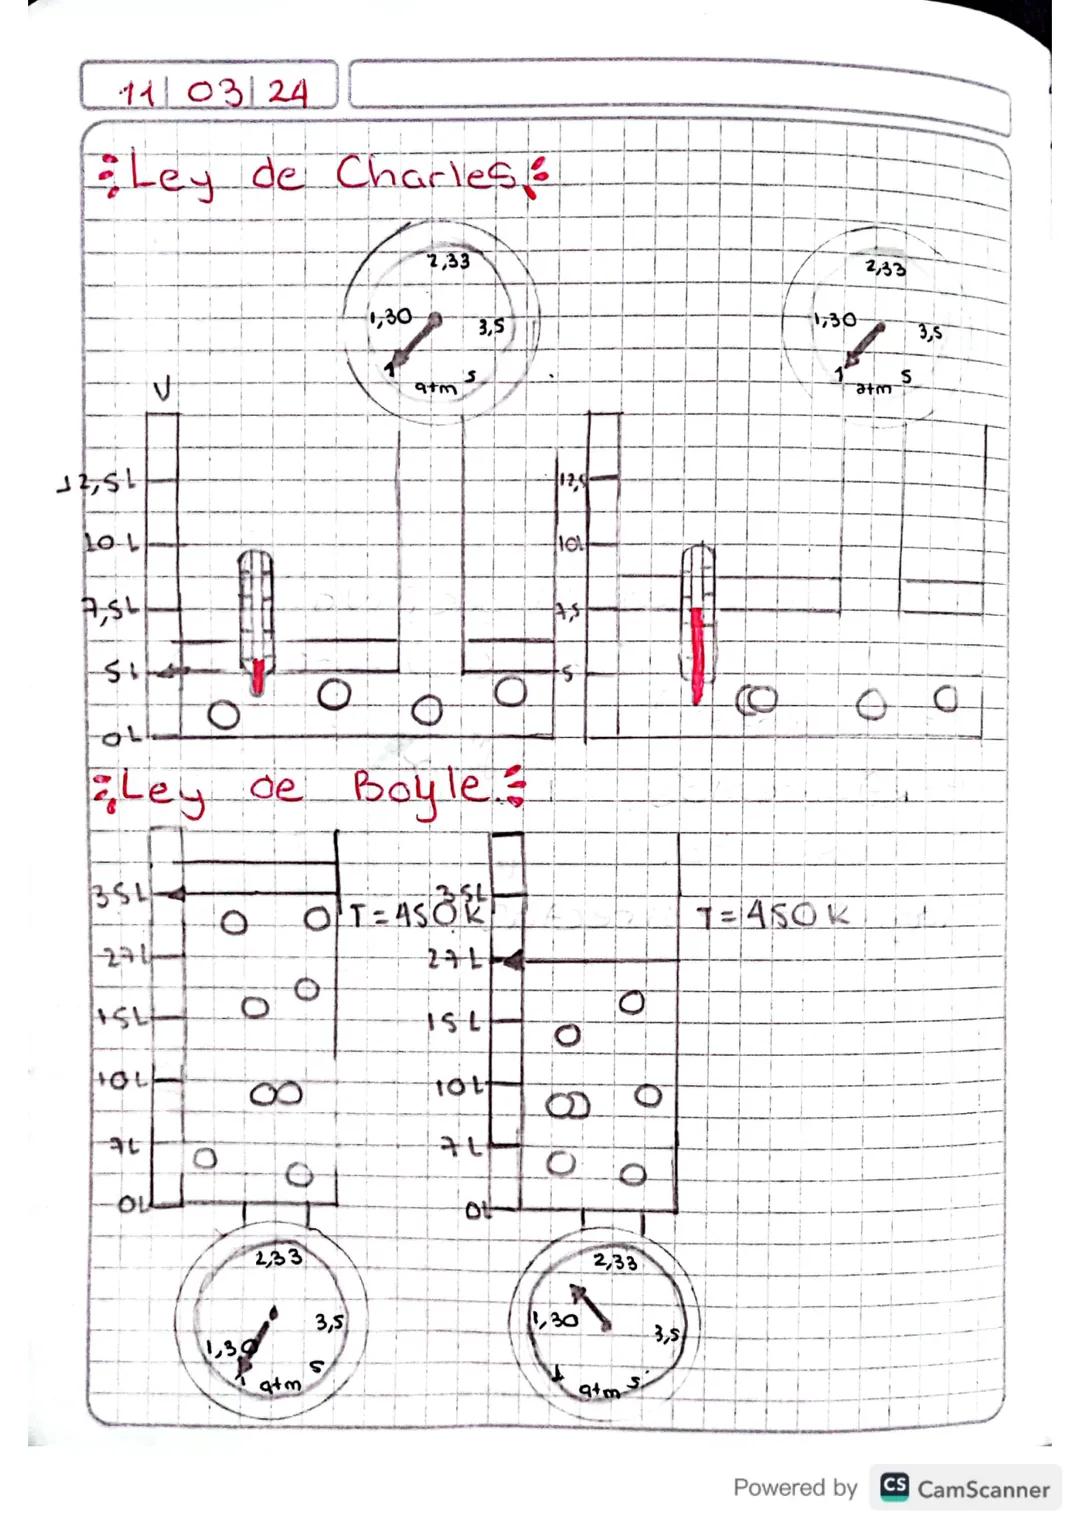 11/03/24
Ley de Charles
2,33
1,30
3,5
1
atm
5
2,33
1,30
3,5
1
atm
5
V
12,5L
10L
7,5L
5L
0L
12,5
10L
7,5
5
Ley de Boyle.
35L
27L
15L
10L
7L
0L
T=450K
35L
27L
15L
10L
7L
0L
T=450K
2,33
1,30
3,5
1
atm
5
2,33
1,30
3,5
1
atm
5
Powered by CS CamScanner